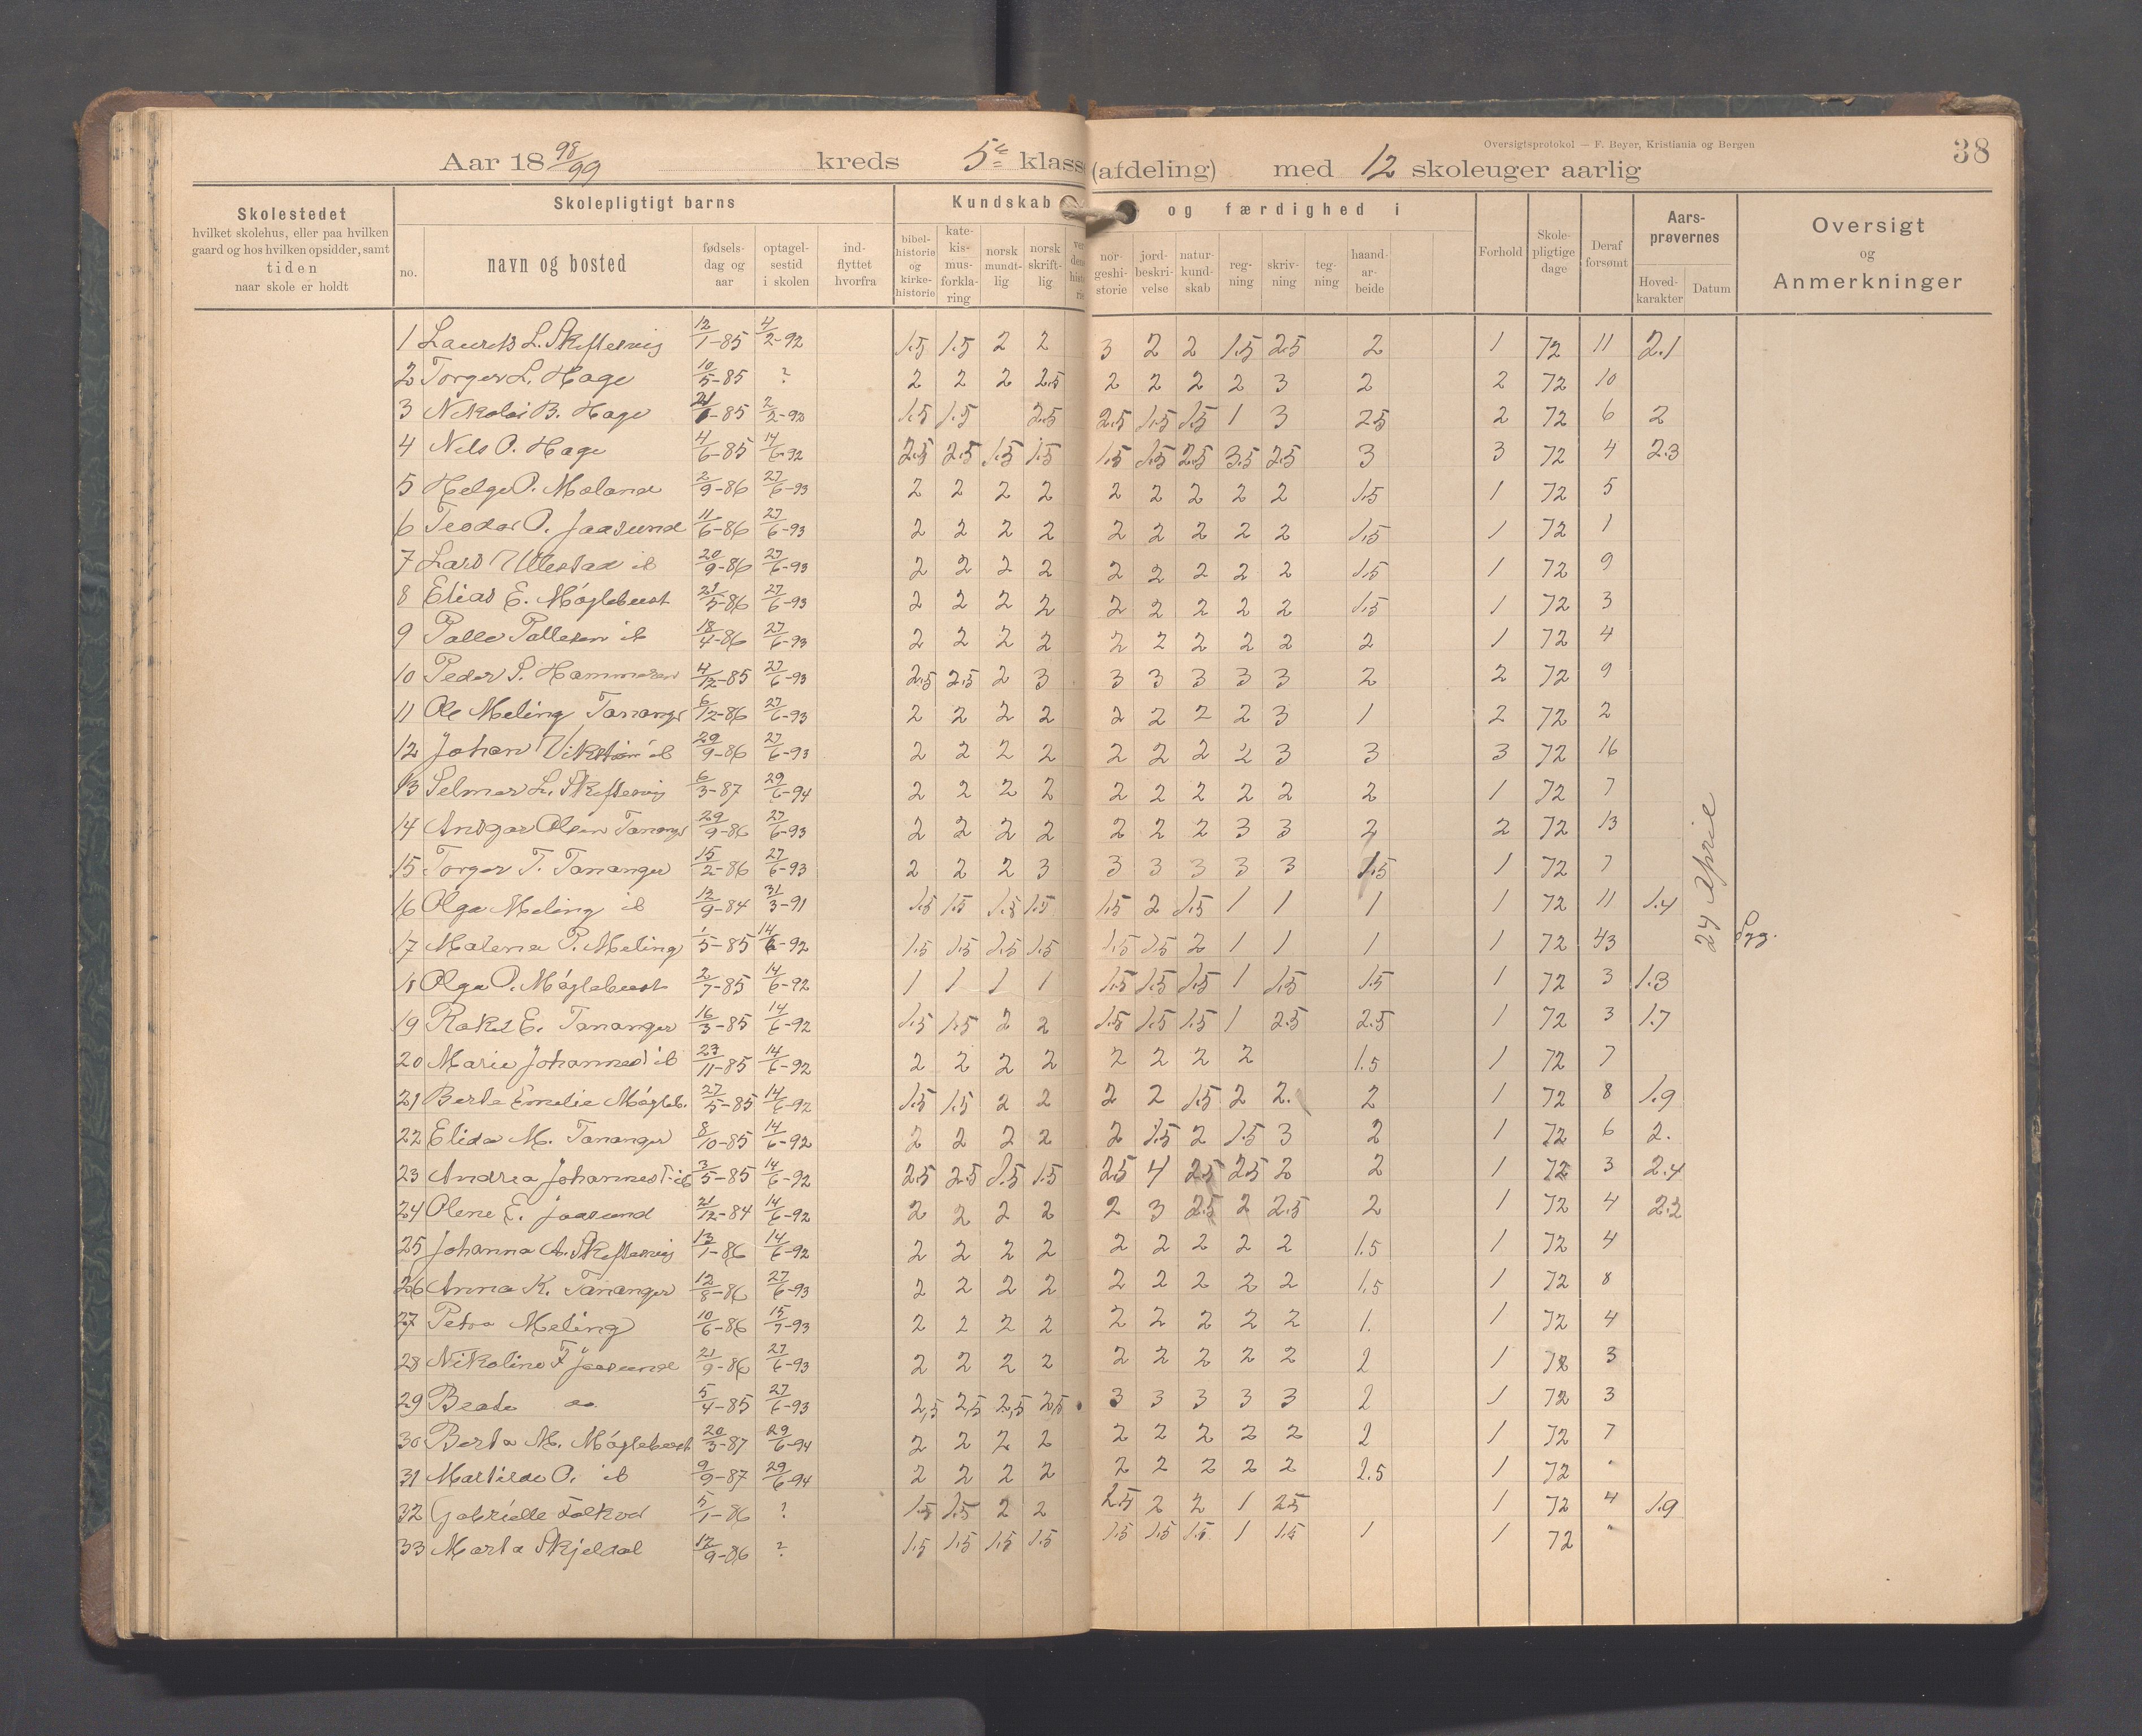 Oversigtsprotokol — F. Beyer, Kristiania og Bergen
38
Aar 18 98/99 kreds 5te klasse (afdeling) med 12 skoleuger aarlig
Skolestedet
hvilket skolehus, eller paa hvilken
gaard og hos hvilken opsidder, samt
tiden
naar skole er holdt
Skolepligtigt barns
no.
navn og bosted
fødsels-
dag og
aar
optagel-
sestid
i skolen
ind-
flyttet
hvorfra
Kundskab og færdighed i
bibel-
historie
og
kirke-
historie
kate-
kis-
mus-
forkla-
ring
norsk
mundt-
lig
norsk
skrift-
lig
nor-
geshi-
storie
jord-
beskri-
velse
natur-
kund-
skab
reg-
ning
skriv-
ning
teg-
ning
haand-
ar-
beide
Forhold
Skole-
pligtige
dage
Deraf
forsømt
Aars-
prøvernes
Hoved-
karakter
Datum
Oversigt
og
Anmerkninger
1 Laurits L. Skiftesvig 12/1-85 4/2-92 1.5 1.5 2 2 3 2 2 1.5 2.5 2 1 72 11 2.1
2 Torger L. Hage 10/5-85 ? 2 2 2 2.5 2 2 2 2 3 2 2 72 10
3 Nikolai B. Hage 21/6-85 2/2-92 1.5 1.5 2.5 2.5 1.5 1.5 1 3 2.5 2 72 6 2
4 Nels O. Hage 4/6-85 14/6-92 2.5 2.5 1.5 1.5 1.5 1.5 2.5 3.5 2.5 3 3 72 4 2.3
5 Helge P. Moland 2/9-86 27/6-93 2 2 2 2 2 2 2 2 2 1.5 1 72 5
6 Teodor P. Jaasund 11/6-86 27/6-93 2 2 2 2 2 2 2 2 2 1.5 1 72 1
7 Lars Ullestad ib 20/9-86 27/6-93 2 2 2 2 2 2 2 2 2 1.5 1 72 9
8 Elias E. Møglebust 21/5-86 27/6-93 2 2 2 2 2 2 2 2 2 1.5 1 72 3
9 Palle Pallesen ib 18/4-86 27/6-93 2 2 2 2 2 2 2 2 2 2 1 72 4
10 Peder P. Hammeren 4/12-85 27/6-93 2.5 2.5 2 3 3 3 3 3 3 2 2 72 9
11 Ole Meling Tananger 6/12-86 27/6-93 2 2 2 2 2 2 2 2 3 1 2 72 2
12 Johan ib 29/9-86 27/6-93 2 2 2 2 2 2 2 2 3 3 3 72 16
13 Selmer L. Skiftesvig 6/3-87 29/6-94 2 2 2 2 2 2 2 2 2 2 1 72 7
14 Ansgar Olsen Tananger 29/9-86 27/6-93 2 2 2 2 2 2 2 3 3 2 2 72 13
15 Torger T. Tananger 15/2-86 27/6-93 2 2 2 3 3 3 3 3 3 1.5 1 72 7
16 Olga Meling ib 12/9-84 31/3-91 1.5 1.5 1.5 1.5 1.5 2 1.5 1 1 1 1 72 11 1.4
17 Malena P. Meling 1/5-85 14/6-92 1.5 1.5 1.5 1.5 1.5 1.5 2 1 1 1 1 72 43 Syg.
18 Olga P. Møglebust 2/7-85 14/6-92 1 1 1 1 1.5 1.5 1.5 1 1.5 1.5 1 72 3 1.3
19 Rakel E. Tananger 16/3-85 14/6-92 1.5 1.5 2 2 1.5 1.5 1.5 1 2.5 2.5 1 72 3 1.7
20 Marie Johannes ib 23/11-85 14/6-92 2 2 2 2 2 2 2 2 1.5 1 72 7
21 Berta Emelie Møgleb. 27/5-85 14/6-92 1.5 1.5 2 2 2 2 1.5 2 2. 2 1 72 8 1.9
22 Elida M. Tananger 8/10-85 14/6-92 2 2 2 2 2 1.5 2 1.5 3 2 1 72 6 2.
23 Andrea Johannes T. ib 3/5-85 14/6-92 2.5 2.5 1.5 1.5 2.5 4 2.5 2.5 2 2 1 72 3 2.4
24 Olene E. Jaasund 21/12-84 14/6-92 2 2 2 2 2 3 2.5 2 2.5 2 1 72 4 2.2
25 Johanna A. Skiftesvig 13/1-86 14/6-92 2 2 2 2 2 2 2 2 2 1.5 1 72 4
26 Anna K. Tananger 12/8-86 27/6-93 2 2 2 2 2 2 2 2 2 1.5 1 72 8
27 Petra Meling 10/6-86 15/7-93 2 2 2 2 2 2 2 2 2 1. 1 72 4
28 Nikoline T Jaasund 21/9-86 27/6-93 2 2 2 2 2 2 2 2 2 2 1 72 3
29 Beate do. 5/4-85 27/6-93 2,5 2,5 2,5 2,5 3 3 3 3 3 2 1 72 3
30 Berta M. Møglebust 20/3-87 29/6-94 2 2 2 2 2 2 2 2 2 2 1 72 7
31 Martilde O. ib 9/9-87 29/6-94 2 2 2 2 2 2 2 2 2 2.5 1 72 "
32 Gabrielle 5/1-86 ? 1.5 1.5 2 2 2.5 2 2 1 2.5 1 72 4 1.9
33 Marta Skjeldal 12/9-86 ? 1.5 1.5 1.5 1.5 1.5 1.5 1.5 1 1.5 1 1 72 "
24 April